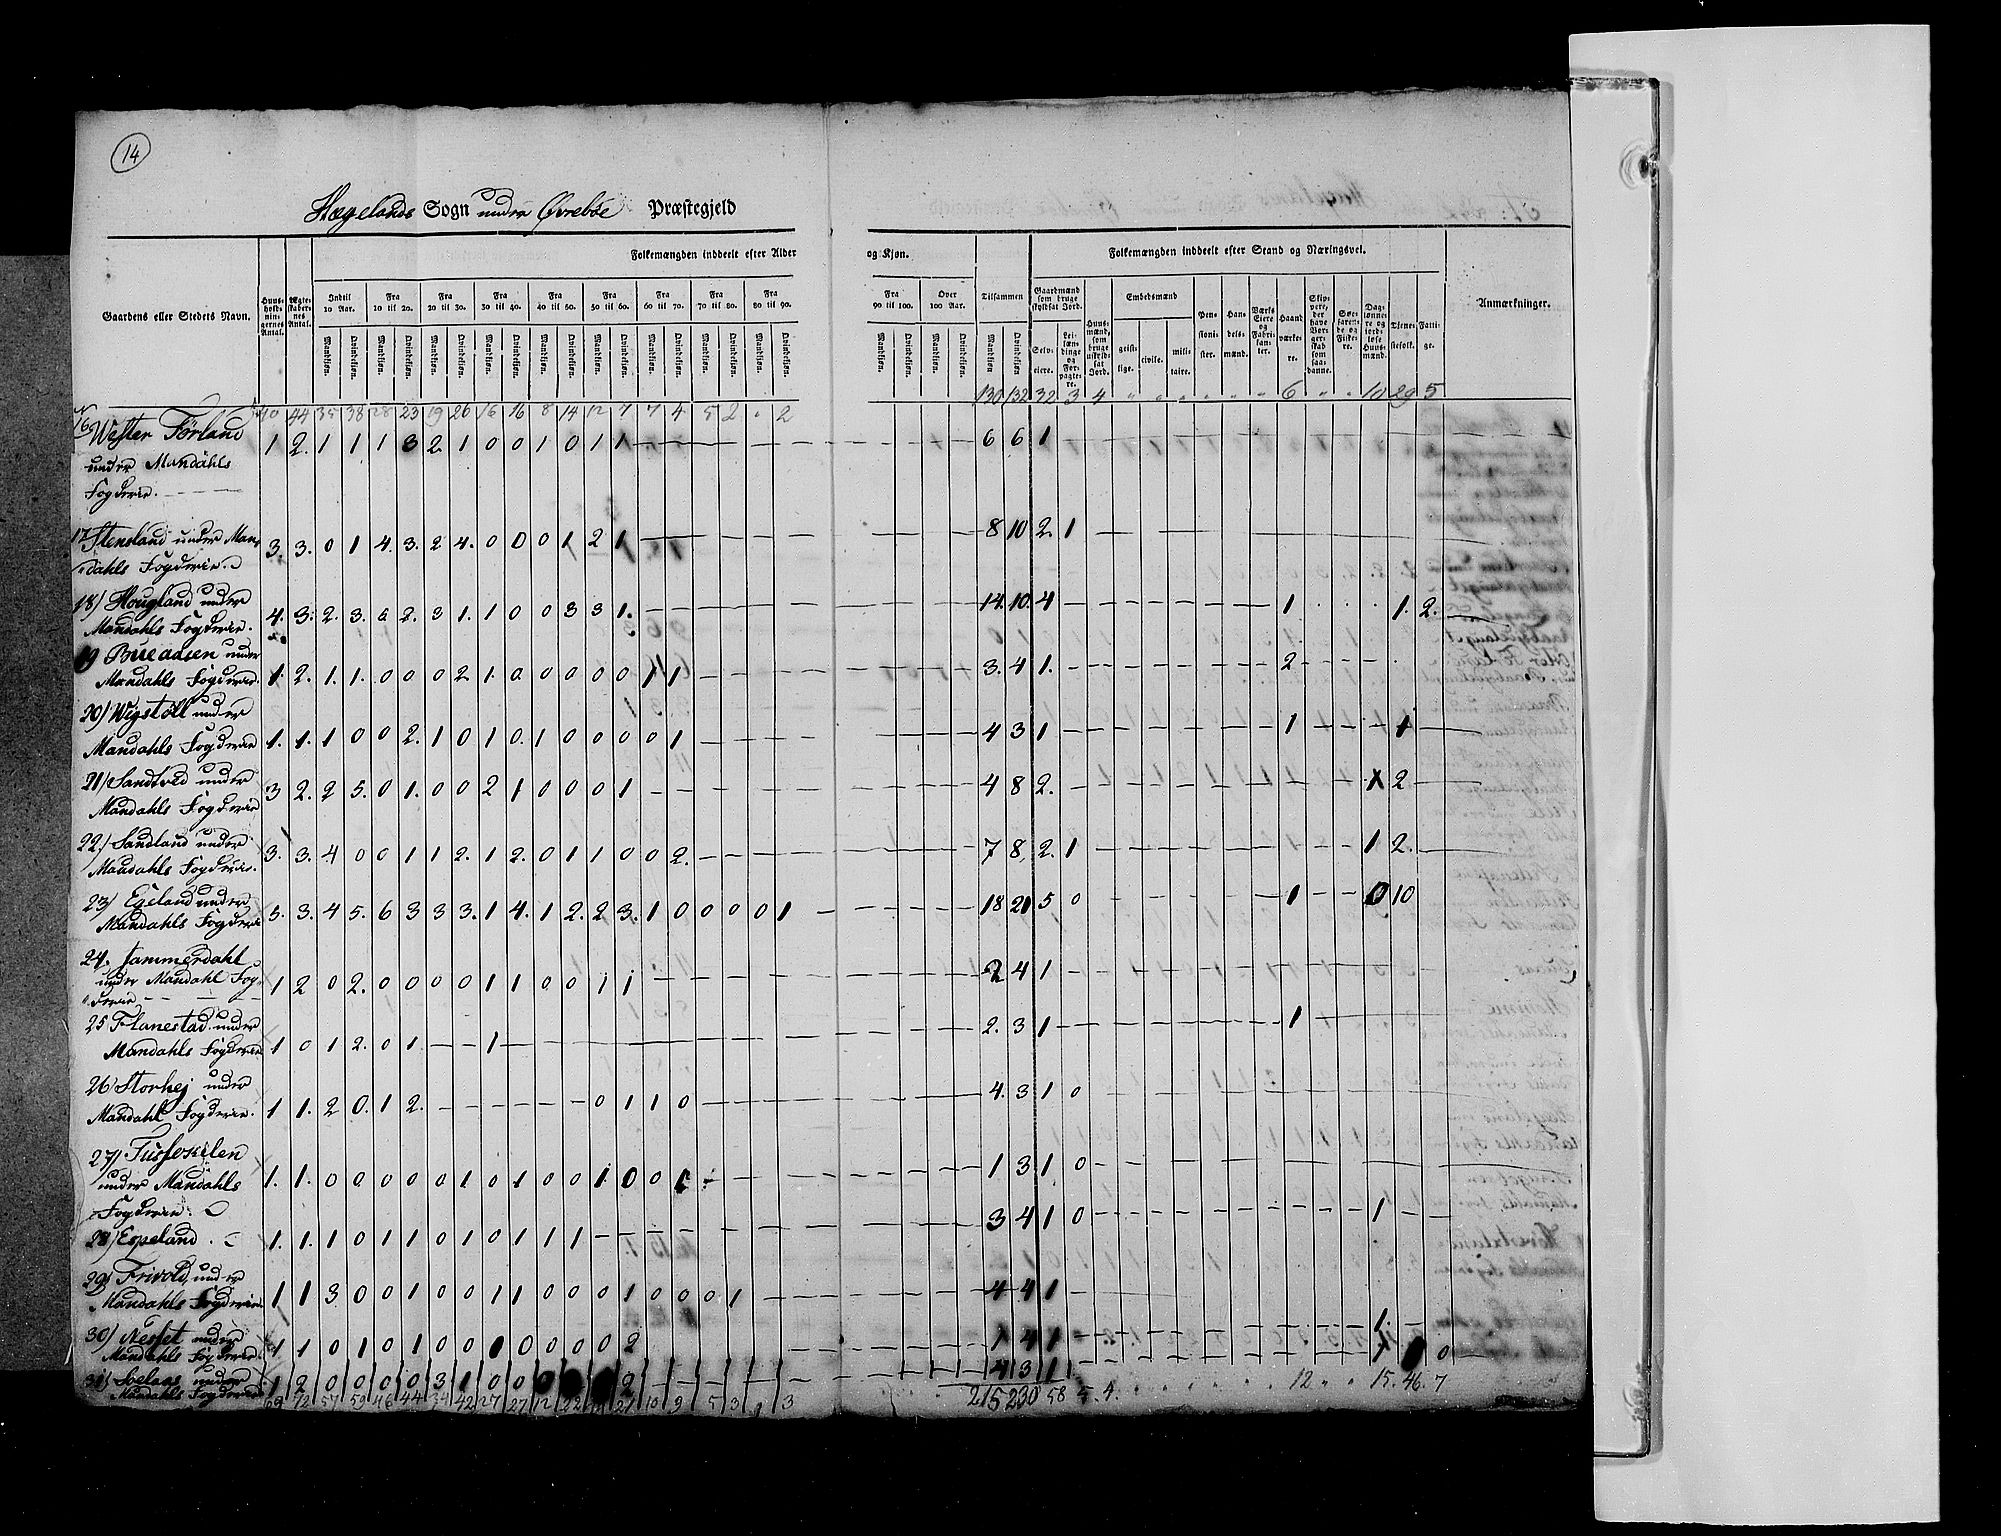 14
Hægelands Sogn under Øvrebøe Præstegjeld
Folkemængden inddeelt efter Alder og Kjøn. Folkemængden inddeelt efter Stand og Næringsvei.
Gaardens eller Stedets Navn. Huusholdningernes Antal. Ægteskabernes Antal. Indtil 10 Aar. Fra 10 til 20. Fra 20 til 30. Fra 30 til 40. Fra 40 til 50. Fra 50 til 60. Fra 60 til 70. Fra 70 til 80. Fra 80 til 90. Fra 90 til 100. Over 100 Aar. Tilsammen Gaardmænd som bruge skyldsat Jord. Huusmænd, som bruge uskyldsat Jord. Embedsmænd Pensionister. Handelsmænd. Værks Eiere og Fabrikanter. Haandværkere. Skippere, der have Borgerskab som saadanne. Søefarende og Fiskere. Daglønnere og jordløse Huusmænd. Tjenestefolk. Fattige. Anmærkninger.
Mandkjøn. Qvindekjøn. Mandkjøn. Qvindekjøn. Mandkjøn. Qvindekjøn. Mandkjøn. Qvindekjøn. Mandkjøn. Qvindekjøn. Mandkjøn. Qvindekjøn. Mandkjøn. Qvindekjøn. Mandkjøn. Qvindekjøn. Mandkjøn. Qvindekjøn. Mandkjøn. Qvindekjøn. Mandkjøn. Qvindekjøn. Mandkjøn. Qvindekjøn. Selveiere. Leilændinge og Forpagtere. geistlige. civile. militaire.
130 132 32 3 4 " " " " " " 6 " " 10 29 5
40 44 35 38 28 23 19 26 16 16 8 14 12 7 7 4 5 2 " 2
16 Wester Førland 1 2. 1 1 1 3 2. 1 0 0 1 0 1 1 — 6 6 1
under Mandahls
Fogderie.
17 Stensland under Man= 3. 3. 0 1 4. 3. 2 4. 0 0 0 1 2 1 — 8 10 2. 1
dahls Fogderie.
18) Hougland under
Mandahls Fogderie. 4. 3. 2. 3. 6 2. 3 1. 1 0 0 3 3 1. — 14. 10. 4 — 1 1. 2.
19 under
Mandahls Fogderie. 1. 2. 1. 1. 0 0 0 2 1. 0 0 0 0 0 1 1 — 3. 4 1. — 2
20) Wigstøll under
Mandahls Fogderie 1. 1. 1 0 0 2. 1 0 1 0. 1 0 0 0 0 1 — 4 3 1 — 1 — 1
21) Sandtved under
Mandahls Fogderie 3 2. 2 5. 0 1. 0 0 2 1 0 0 0 1 — 4 8 2. — 1 2
22) Sandland under
Mandahls Fogderie. 3. 3. 4 0 0 1 1 2. 1 2. 0 1 1 0 0 2. — 7 8. 2. 1 — 1 2.
23) Egeland under
Mandahls Fogderie 5. 3. 4 5. 6 3 3 3. 1 4. 1 2. 2 3. 1 0 0 0 0 1 — 18 21 5 0 — 1 — 0 10
24. Jammerdahl
under Mandahl Fog= 1 2 0 2. 0 0 0 0 1 1 0 0 1 1 — 2 4 1 —
derie
25 Flanestad under
Mandahls Fogderie 1 0 1 2. 0 1 — 1 — 2. 3 1 — 1
26 Storhej under
Mandahl Fogderie. 1 1. 2 0. 1 2. — 0 1 1 0 — 4. 3 1 0
27)
under Mandahls 1. 1. 0 0 0 0 0 1 0 1 0 0 1 0 0 1 — 1 3 1 0 —
Fogderie.
28) Espeland. 1. 1. 1 0 1 1 0 1 0 1 1 1 — 3 4 1 0 — 1
29) Frivold under
Mandahls Fogderie 1 1 3 0 0 1 0 0 1 1 0 0 0 1 0 0 0 1 — 4 4 1 —
30) Nesset under
Mandahls Fogderie 1 1 0 1 0 1 0 0 1 0 0 0 0 2 — 1 4 1 — 1.
31) under
Mandahls Fogderie 1 2 0 0 0 0 3 1 0 0 2 — 4 3 1 — 1 0
69 72 57 59 46 44 34 42 27 27 12 22 21 10 9 5 3 1 3 215 230 58 5. 4. 12 " " 15. 46. 7